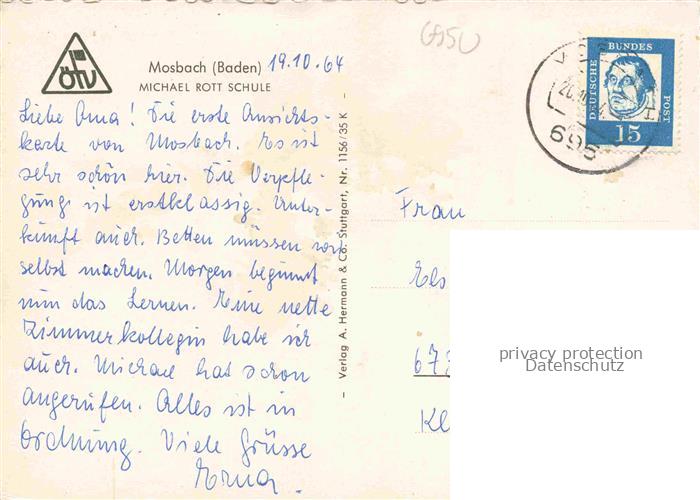 6950
ÖTV
Mosbach (Baden) 19.10.64
MICHAEL ROTT SCHULE
Liebe Oma! Die erste Ansichts-
karte von Mosbach. Es ist
sehr schön hier. Die Verpfle-
gung ist erstklassig. Unter-
kunft auch. Betten müssen wir
selbst machen. Morgen beginnt
nun das Lernen. Eine nette
Zimmerkollegin habe ich
auch. Michael hat schon
angerufen. Alles ist in
Ordnung. Viele Grüsse
Erna.
– Verlag A. Hermann & Co. Stuttgart, Nr. 1156/35 K –
DEUTSCHE BUNDES POST
15
695
Frau
Els
673
Kl
privacy protection
Datenschutz